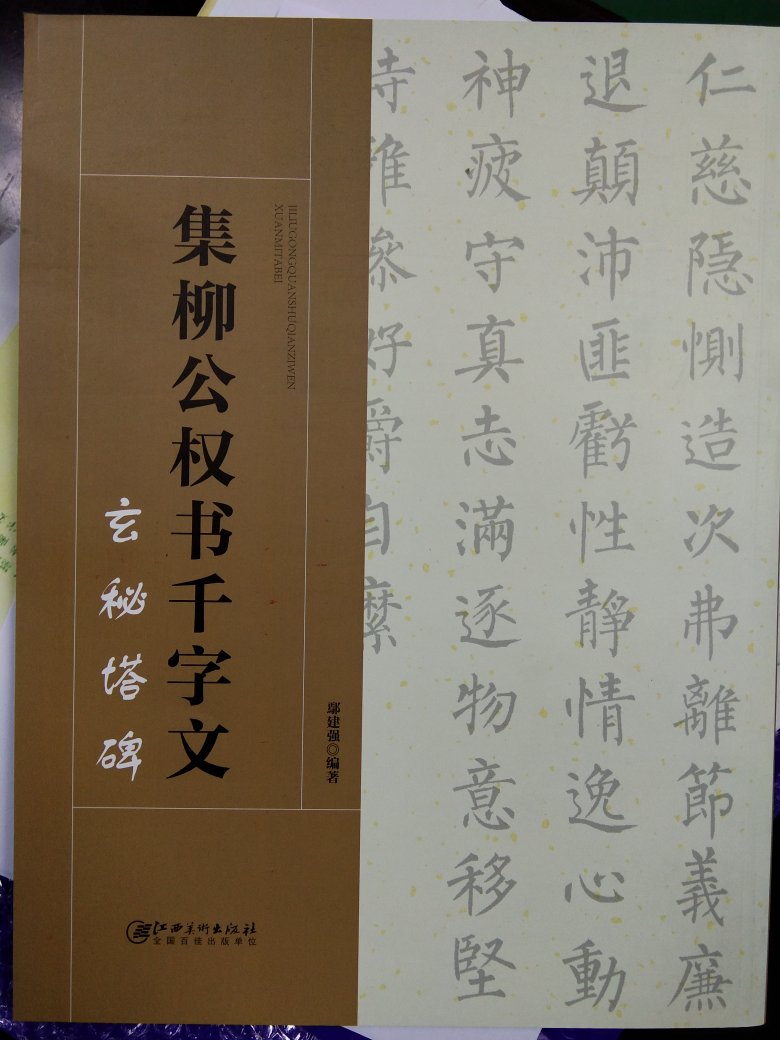 集柳公权书千字文
玄秘塔碑
JILIUGONGQUANSHUQIANZIWEN
XUANMITABEI
鄢建强◎编著
江西美术出版社
全国百佳出版单位
仁慈隱惻造次弗離節義廉
退顛沛匪虧性靜情逸心動
神疲守真志滿逐物意移堅
持雅操好爵自縻